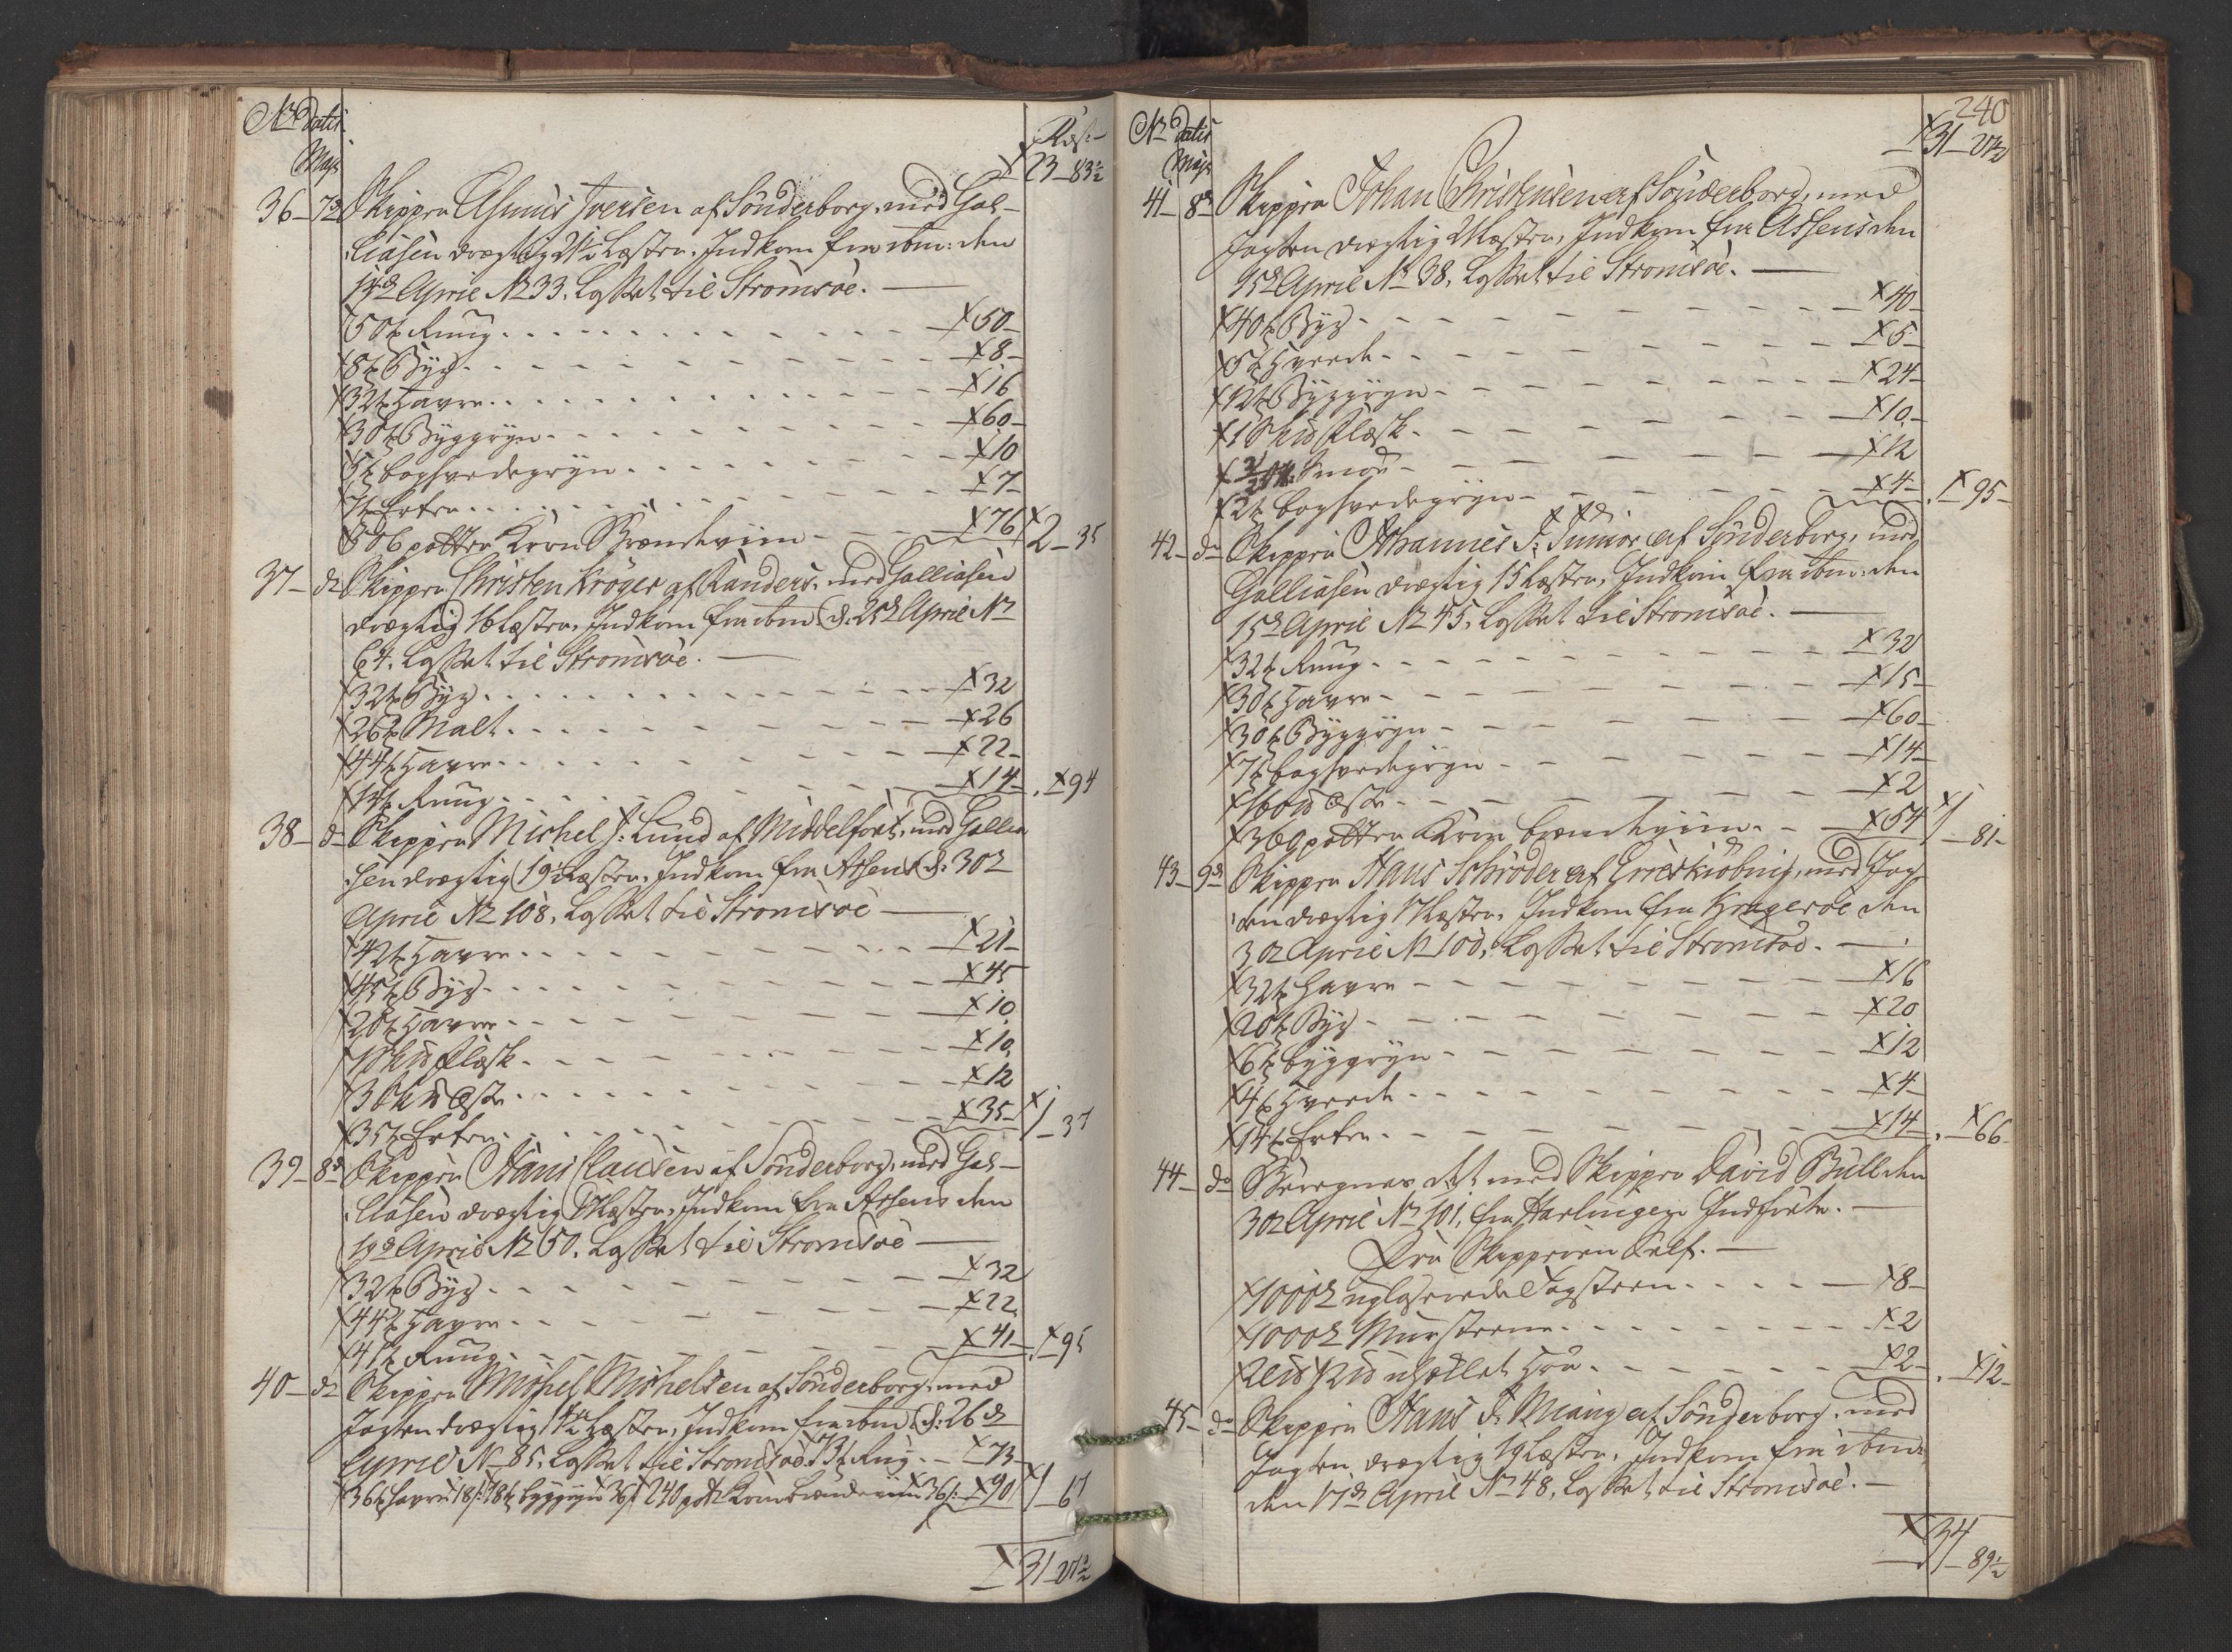 No Datis
Maji
Rdr
23_83½
36_7d Skipper Asmus Iversen af Sönderborg, med Gal-
liasen drægtig 21½ Læster, Indkom fra ibm: den
14d April No 33. Losset til Strömsöe.
50 t Rug 50_
8 t Byg 8_
32 t Havre 16
30 t Byggryn 60_
5 t boghvedegryn 10
7 t Erter 7_
506 potter Korn Brændeviin 76 2_35
37_do Skipper Christen Kröger af Randers, med Galliasen
drægtig 16 Læster, Indkom fra ibm d: 25d April No
64. Losset til Strömsöe.
32 t Byg 32
26 t Malt 26
44 t Havre 22_
14 t Rug 14_ 94
38_do Skipper Michel J: Lund af Middelfart, med Gallia
sen drægtig 19½ Læster, Indkom fra Assens d: 30d
April No 108. Losset til Strömsöe
42 t Havre 21_
45 t Byg 45
20 t Havre 10
1 Skd Flesk 10
3 Skd Ost 12
35 t Erter 35_ 1_37
39_8d Skipper Hans Clausen af Sönderborg, med Gal-
liasen drægtig Læster, Indkom fra Assens den
19d April No 50. Losset til Strömsöe
32 t Byg 32
44 t Havre 22
41 t Rug 41_ 95
40_do Skipper Michel Michelsen af Sönderborg, med
Jagten drægtig Læster, Indkom fra ibm d: 26d
April No 85. Losset til Strömsöe 73 t Rug 73_
36 t havre 18 18 t byggryn 36 240 pott Korn brændeviin 36 90 1_67
31_27½
240
No Datis
Maji
31_27½
41_8d Skipper Johan Christensen af Sönderborg, med
Jagten drægtig Læster, Indkom fra Assens den
15d April No 38. Losset til Strömsöe.
40 t Byg 40_
5 t Hvede 5_
12 t Byggryn 24_
1 Skd Flesk 10_
Smör 12
2 t boghvedegryn 4_ 95_
42_do Skipper Johannes J: Junior af Sönderborg, med
Galliasen drægtig 15 Læster, Indkom fra ibm: den
15d April No 45. Losset til Strömsöe.
32 t Rug 32
30 t Havre 15_
30 t Byggryn 60_
7 t boghvedegryn 14_
160 Ost 2
360 potter Korn brændeviin 54 1_81_
43_9d Skipper Hans Schröder af Erröeskiöbing, med Jag-
ten drægtig Læster, Indkom fra Krageröe den
30d April No 100. Losset til Strömsöe.
32 t Havre 16
20 t Byg 20
6 t byggryn 12
4 t Hvede 4_
14 t Erter 14_ 66_
44_do Beregnes det med Skipper David Bull den
30d April No 101, fra Harlingen Indförte.
Fra Skipperen Self.
1000de uglaserede Tagsteen 8_
1000de Mursteene 2
uheglet Hör 2_ 12_
45_do Skipper Hans J: Miang af Sönderborg, med
Jagten drægtig 19 Læster, Indkom fra ibm:
den 17d April No 48. Losset til Strömsöe.
34_89½